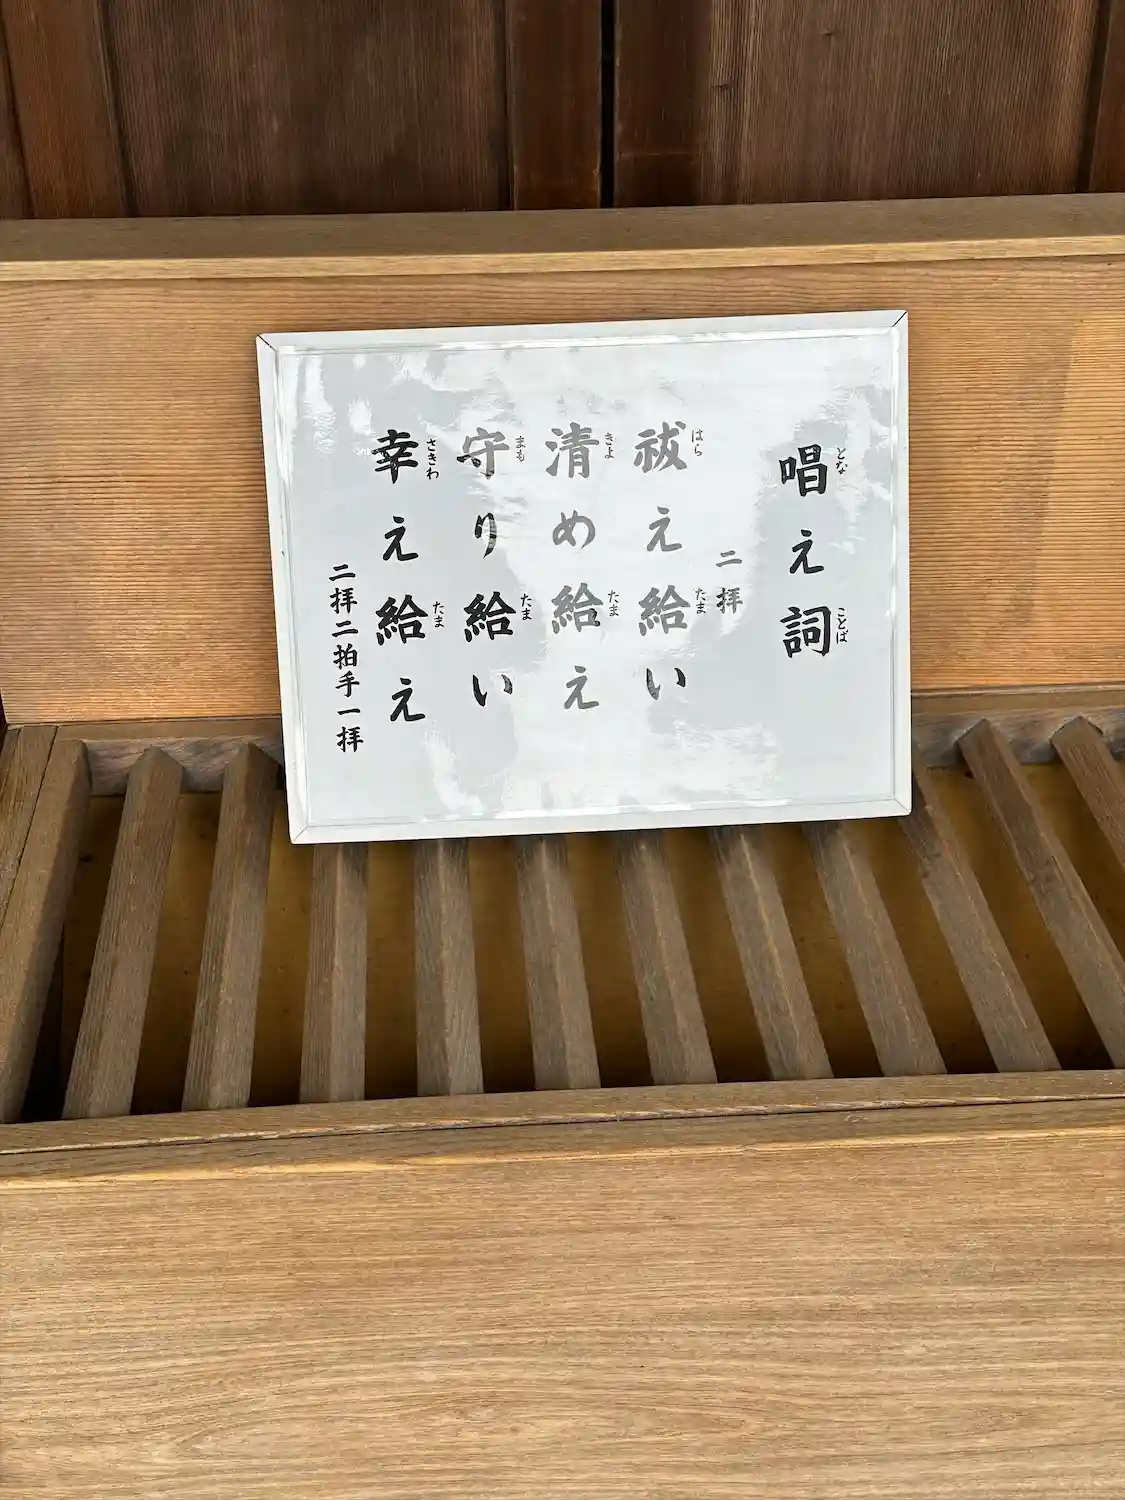 唱え詞
となことば
二拝
祓え給い
はらたま
清め給え
きよたま
守り給い
まもたま
幸え給え
さきわたま
二拝二拍手一拝